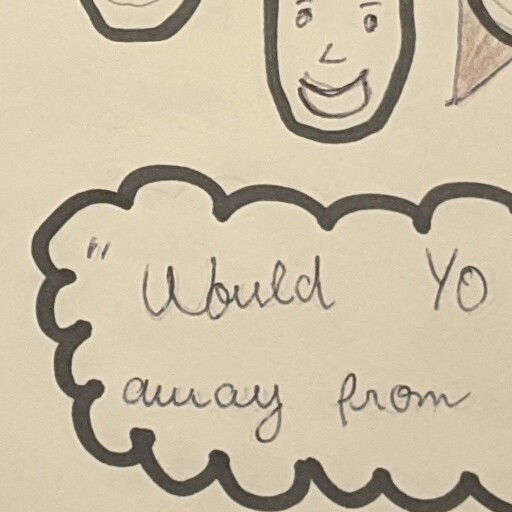 " Would Yo
away from